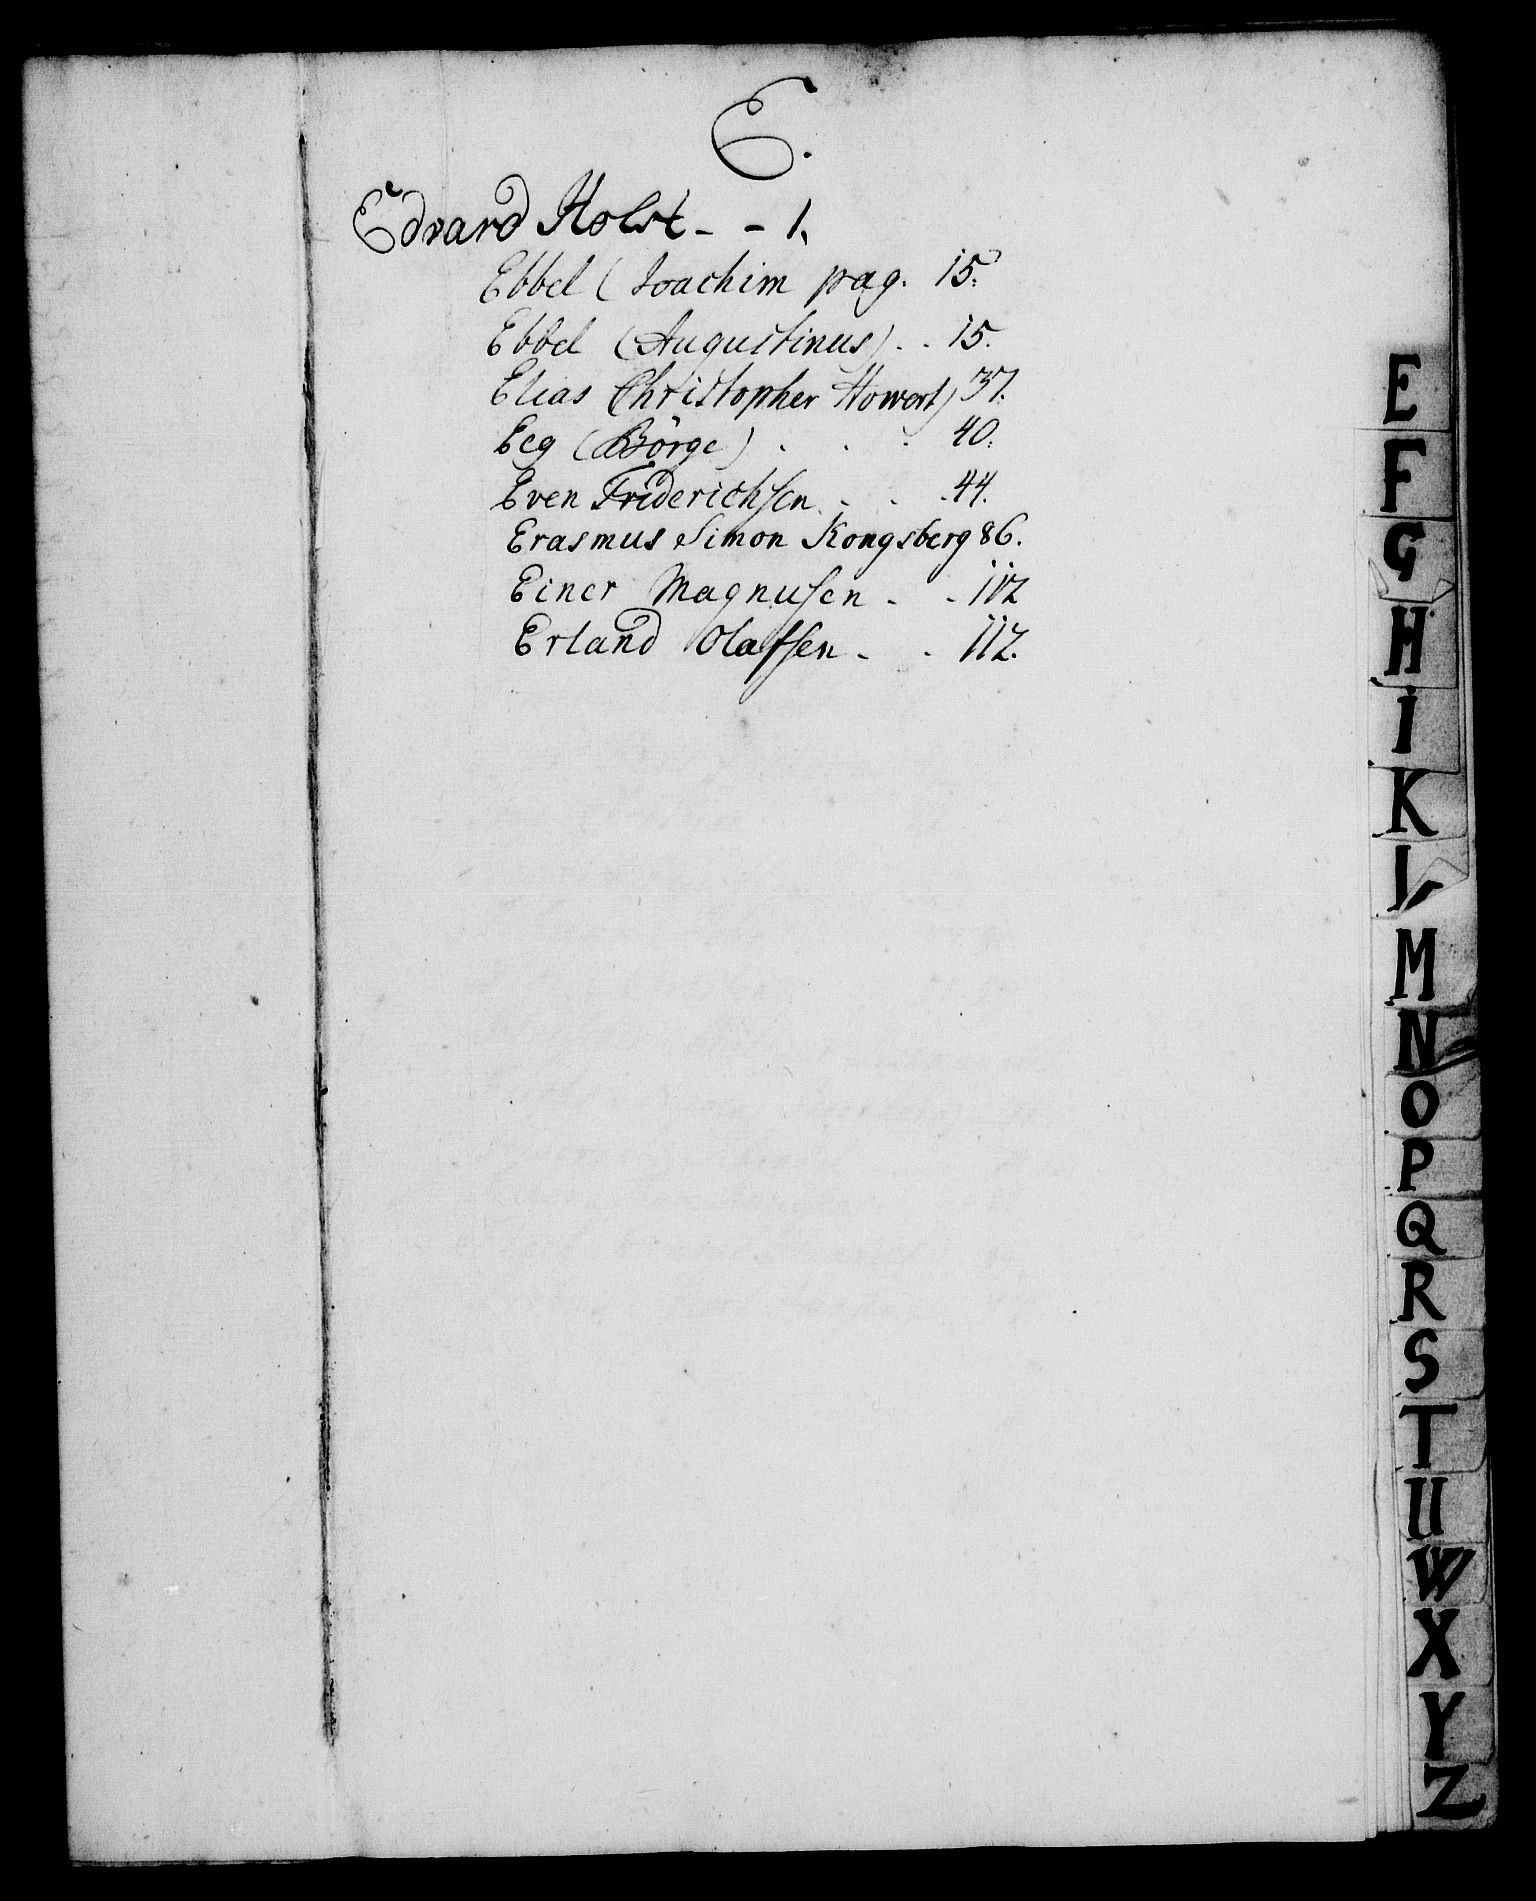 E.
Edvard Holst - - 1.
Ebbel (Joachim pag. 15.
Ebbel (Augustinus) . . 15.
Elias Christopher Howert) 37.
Eeg (Börge) . . . 40.
Even Friderichsen . . . 44.
Erasmus Simon Kongsberg 86.
Einer Magnusen - - 112
Erland Olafsen - - 112.
E
F
G
H
I
K
L
M
N
O
P
Q
R
S
T
U
W
X
Y
Z